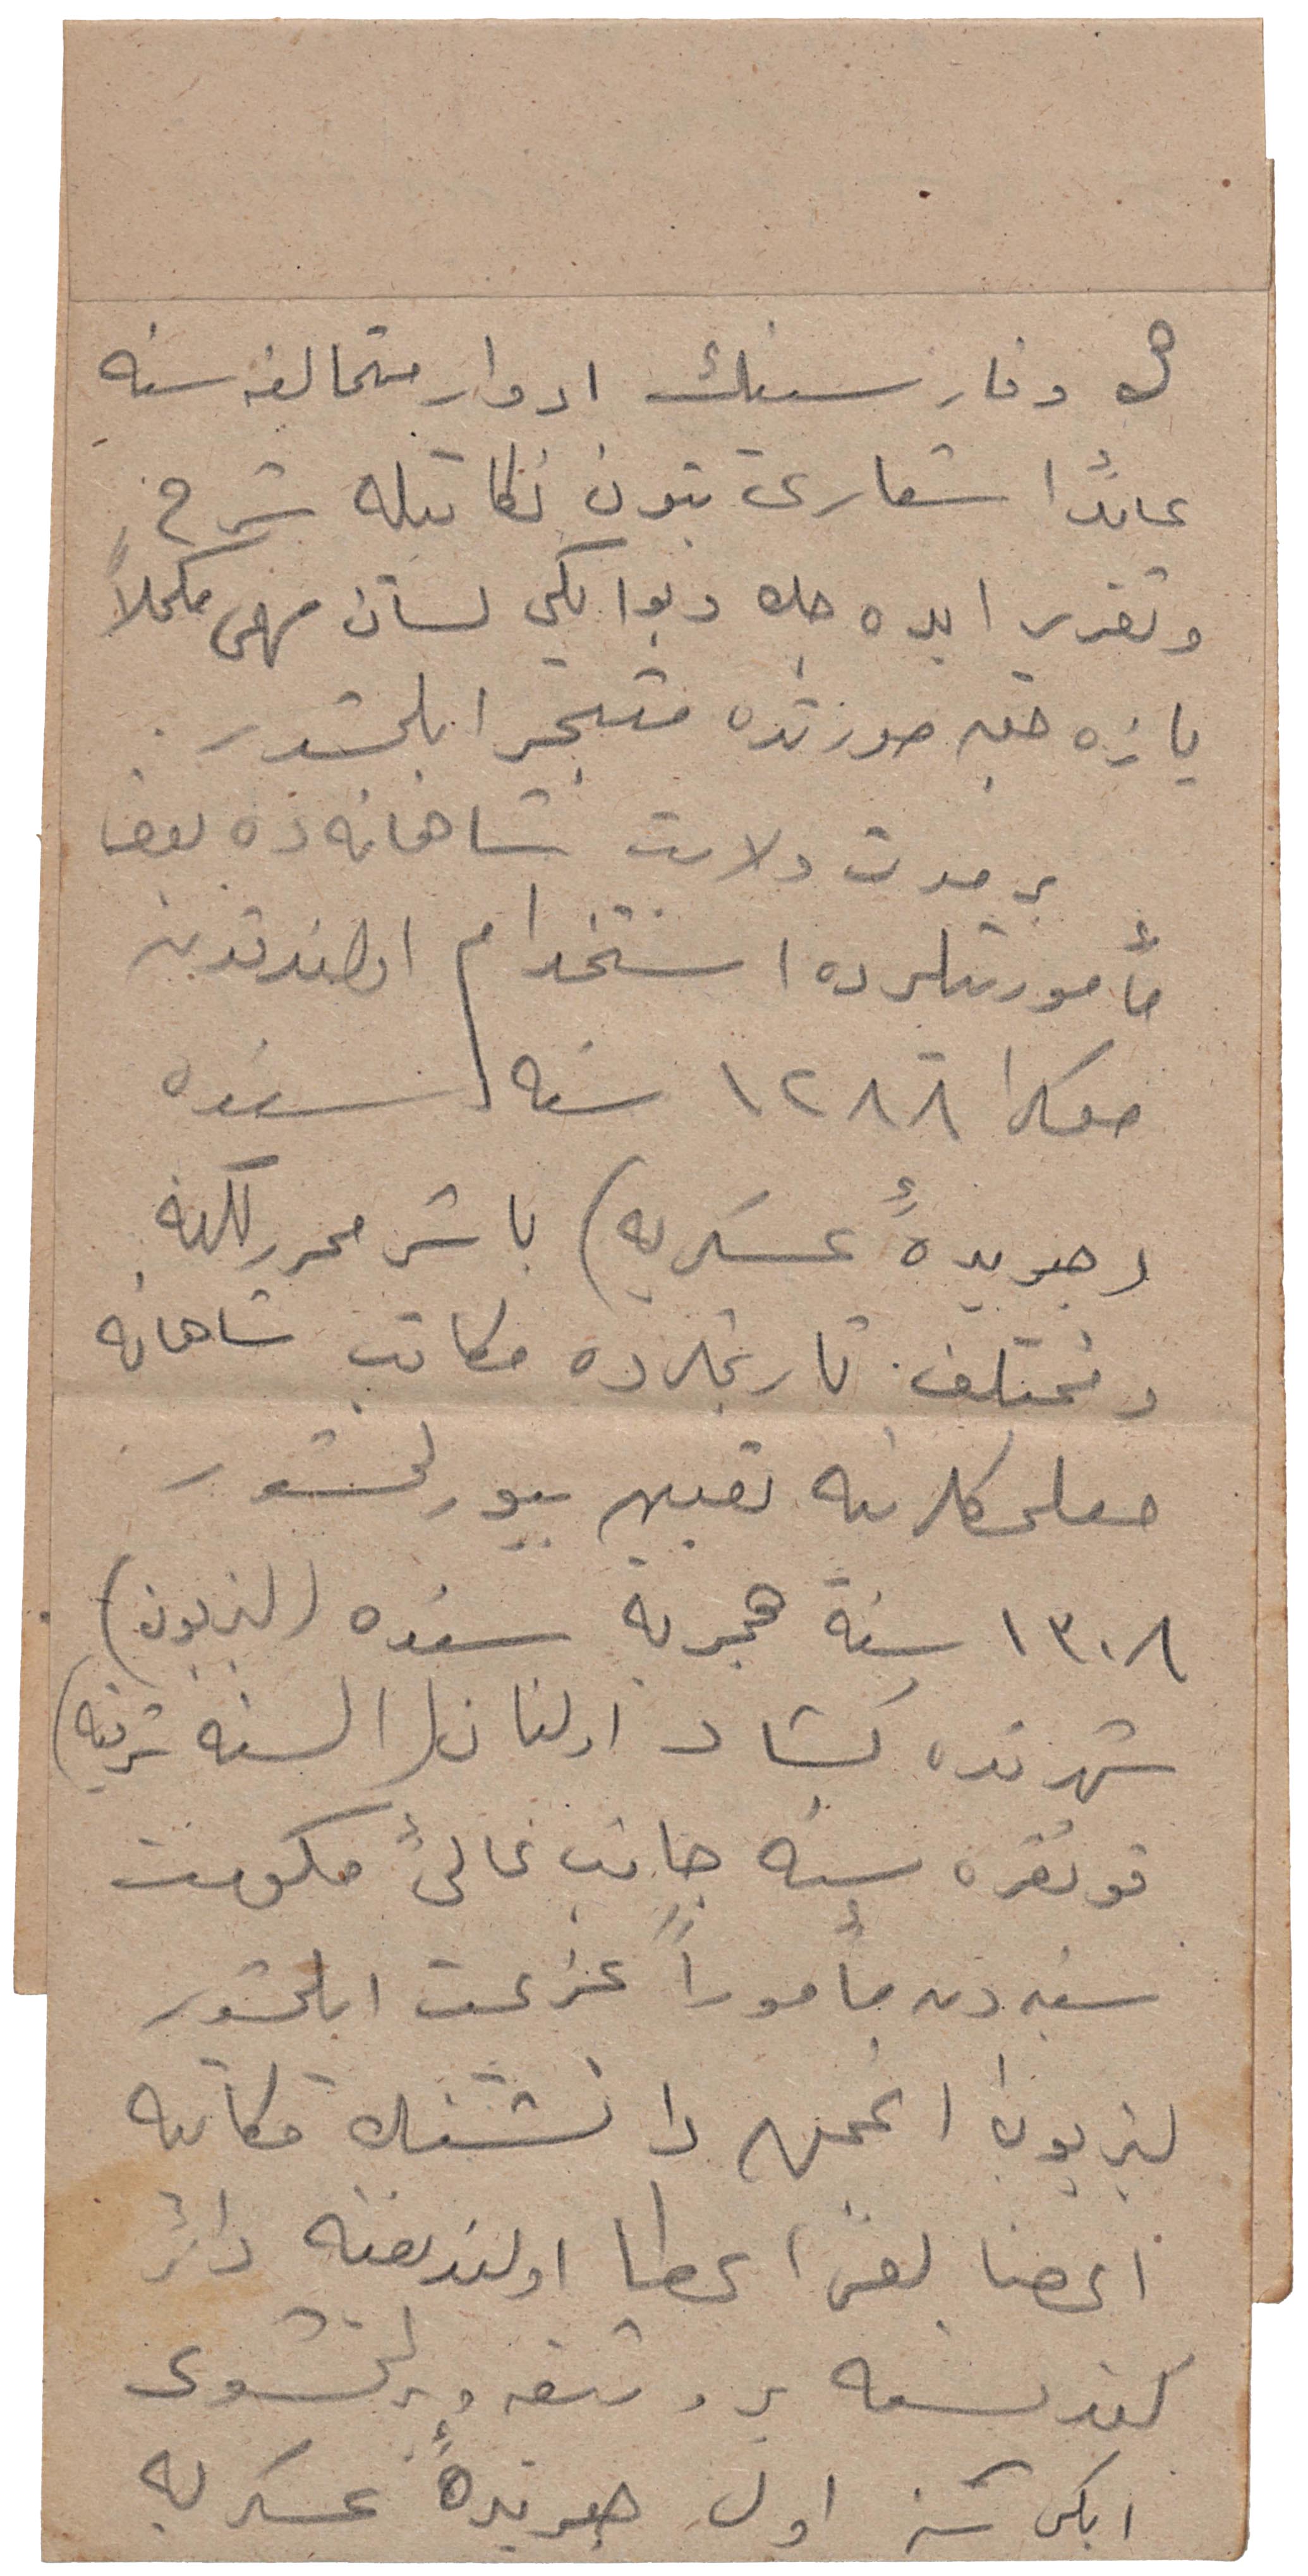 و فارسینك ادوار متخالفه سنه
عائد اشعاری بتون نكاتیله شرح
و تقریر ایده جك و بو ایكی لسان مهمی مكملاً
یازه جق صورتده متبحر ایلمشدر.
بر مدت ولایت شاهانه ده بعض
مأموریتلرده استخدام اولندقدن
صكرا ١٢٨٨ سنه سنده
(جریدهٔ عسكریه) باش محررلكنه
و مختلف تاریخلرده مكاتب شاهانه
معلملكلرینه تعیین بیورلمشدر
١٣٠٨ سنهٔ هجریه سنده (لیزبون)
شهرنده كشاد اولنان (السنه شرقیه)
قونغره سنه جانب عالیٔ حكومت
سنیه دن مأموراً عزیمت ایلمشدر
لیزبون انجمن دانشنك مكاتبه
اعضالغی اعطا اولندیغنه دائر
كندیسنه بر وثیقه ویرلمشدی
ایكی سنه اول جریدهٔ عسكریه